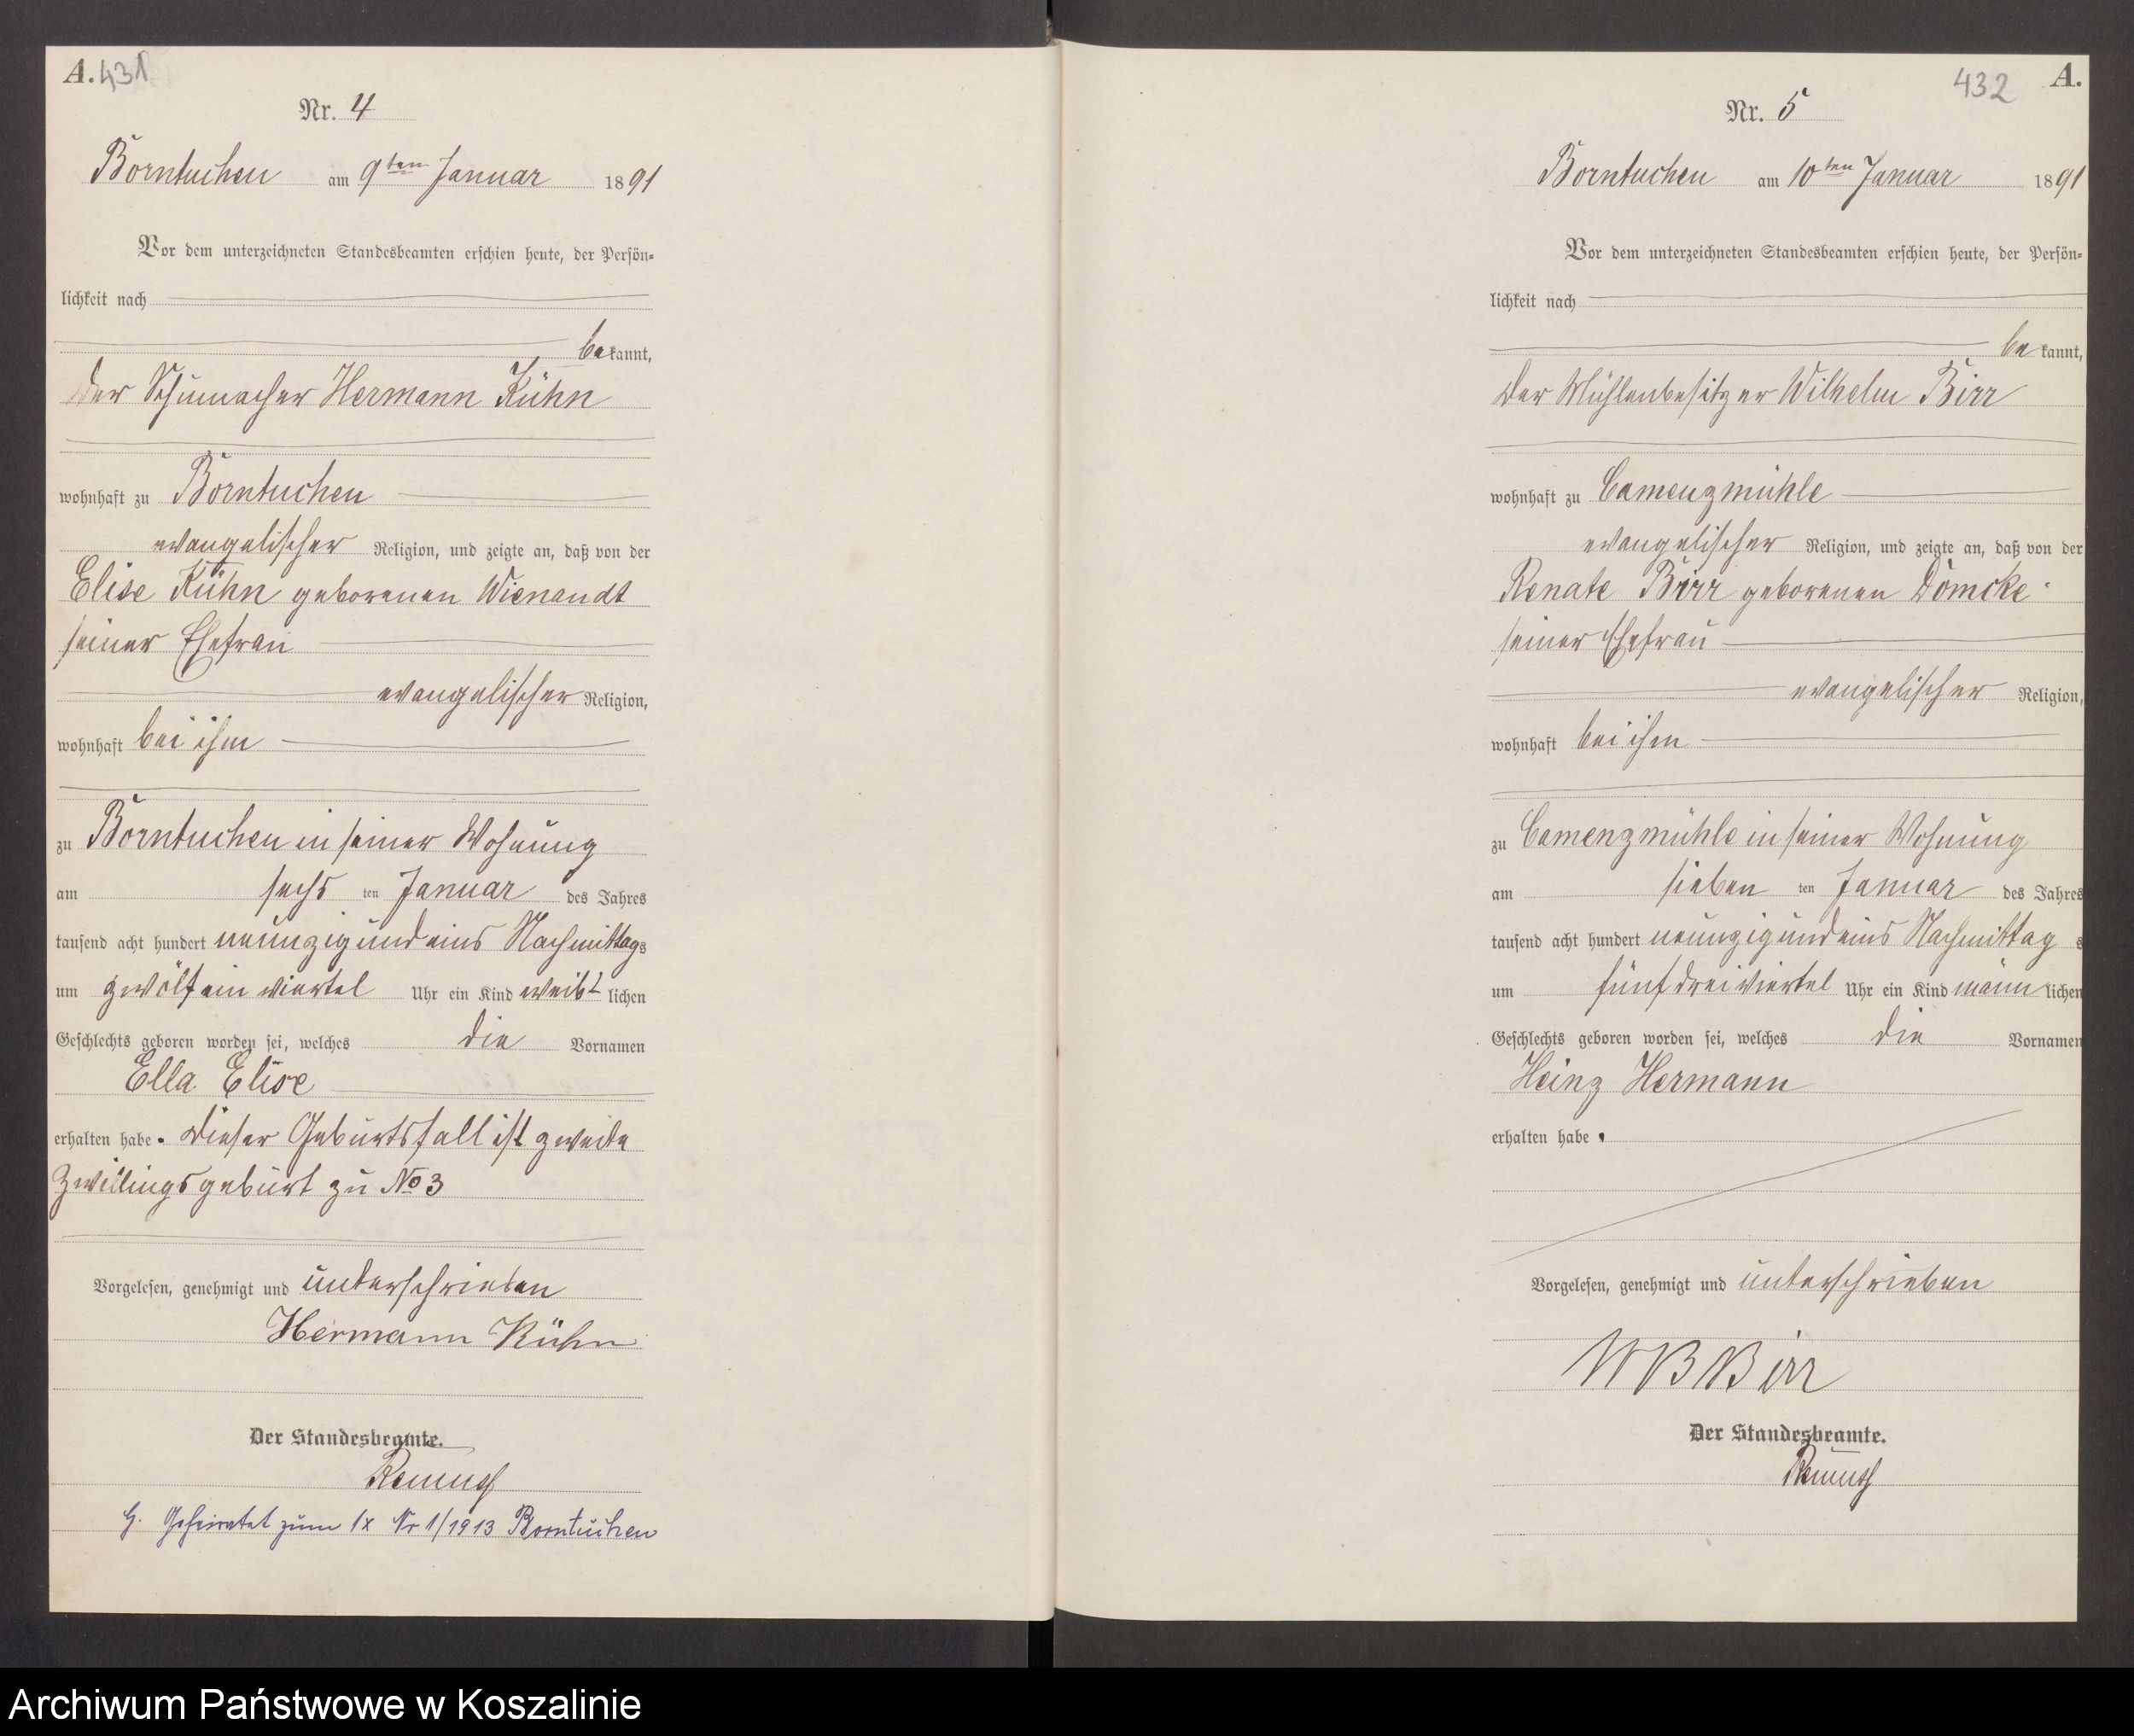 A. 431
Nr. 4
Borntuchen am 9ten Januar 1891
Vor dem unterzeichneten Standesbeamten erschien heute, der Persön-
lichkeit nach
bekannt,
der Schumacher Hermann Kühn
wohnhaft zu Borntuchen
evangelischer Religion, und zeigte an, daß von der
Elise Kühn geborenen Wienandt
seiner Ehefrau
evangelischer Religion,
wohnhaft bei ihm
zu Borntuchen in seiner Wohnung
am sechs ten Januar des Jahres
tausend acht hundert neunzig und eins Nachmittags
um zwölf ein viertel Uhr ein Kind weibl lichen
Geschlechts geboren worden sei, welches die Vornamen
Ella Elise
erhalten habe. Dieser Geburtsfall ist zweite
Zwillingsgeburt zu No 3
Vorgelesen, genehmigt und unterschrieben
Hermann Kühn
Der Standesbeamte.
G. Geheiratet zum 1x Nr 1/1913 Borntuchen
432 A.
Nr. 5
Borntuchen am 10ten Januar 1891
Vor dem unterzeichneten Standesbeamten erschien heute, der Persön-
lichkeit nach
be kannt,
der Mühlenbesitzer Wilhelm Birr
wohnhaft zu Camenzmühle
evangelischer Religion, und zeigte an, daß von der
Renate Birr geborenen Dömcke
seiner Ehefrau
evangelischer Religion,
wohnhaft bei ihm
zu Camenzmühle in seiner Wohnung
am sieben ten Januar des Jahres
tausend acht hundert neunzig und eins Nachmittag s
um fünf drei viertel Uhr ein Kind männ lichen
Geschlechts geboren worden sei, welches die Vornamen
Heinz Hermann
erhalten habe.
Vorgelesen, genehmigt und unterschrieben
W B Birr
Der Standesbeamte.
Archiwum Państwowe w Koszalinie